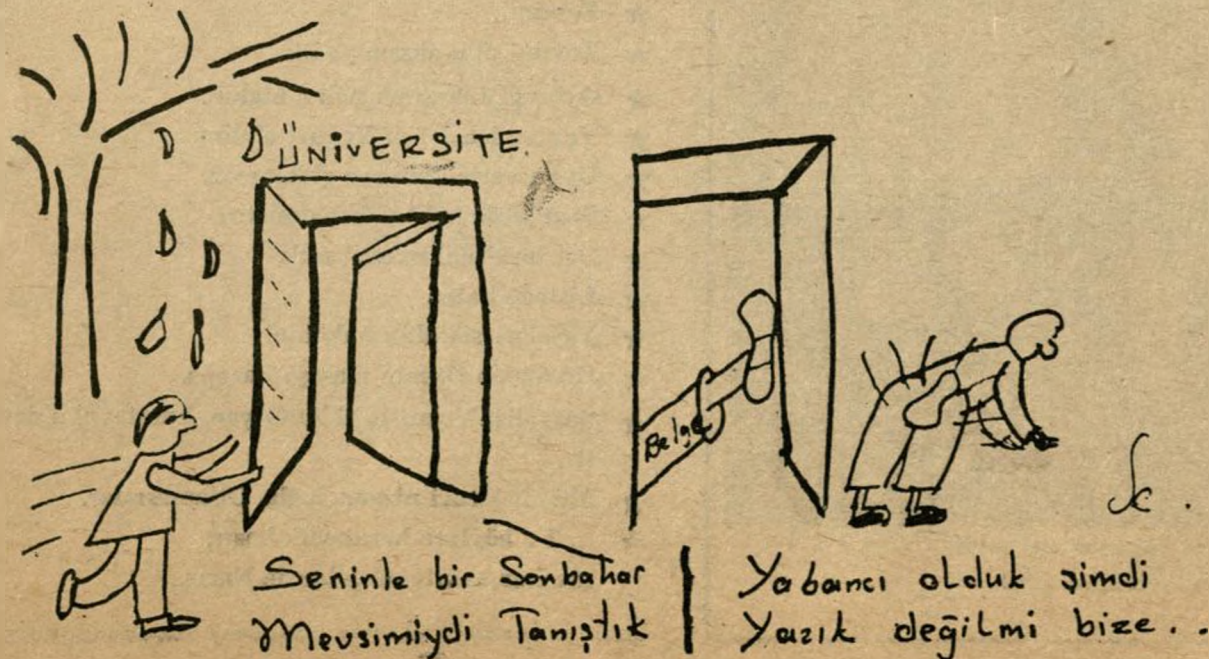 ÜNİVERSİTE.
Belge
Seninle bir Sonbahar
Mevsimiydi Tanıştık
Yabancı olduk şimdi
Yazık değilmi bize..